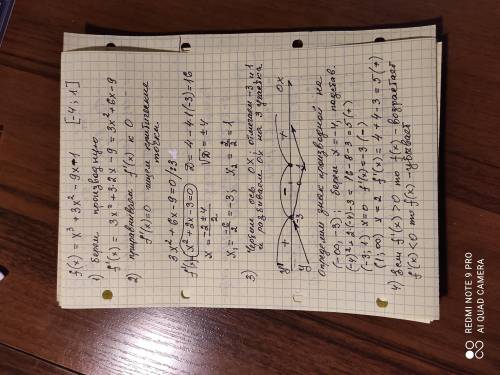 f(x) = x³ + 3x² - 9x - 1   [-4; 1]
1) Берем производную
f'(x) = 3x² + 3·2x - 9 = 3x² + 6x - 9
2) приравниваем f'(x) к 0
f'(x)=0 ищем критические
точки.
3x² + 6x - 9 = 0 /:3
x² + 2x - 3 = 0   D = 4 - 4·1(-3) = 16
x = -2 ± 4 / 2   √D = ±4
x₁ = -6/2 = -3; x₂ = 2/2 = 1
3) Чертим ось OX, отмечаем -3 и 1
и разбиваем OX на 3 участка
+ - + OX
-3 1
Определим знак производной на
(-∞, -3); берем x = -4, подстав.
(-4)² + 2·(-4) - 3 = 16 - 8 - 3 = 5 (+)
(-3; 1) x = 0 f'(x) = -3 (-)
(1; ∞) x = 2 f'(x) = 4 + 4 - 3 = 5 (+)
4) Если f'(x) > 0 то f(x) - возрастает
f'(x) < 0 то f(x) - убывает
REDMI NOTE 9 PRO
AI QUAD CAMERA